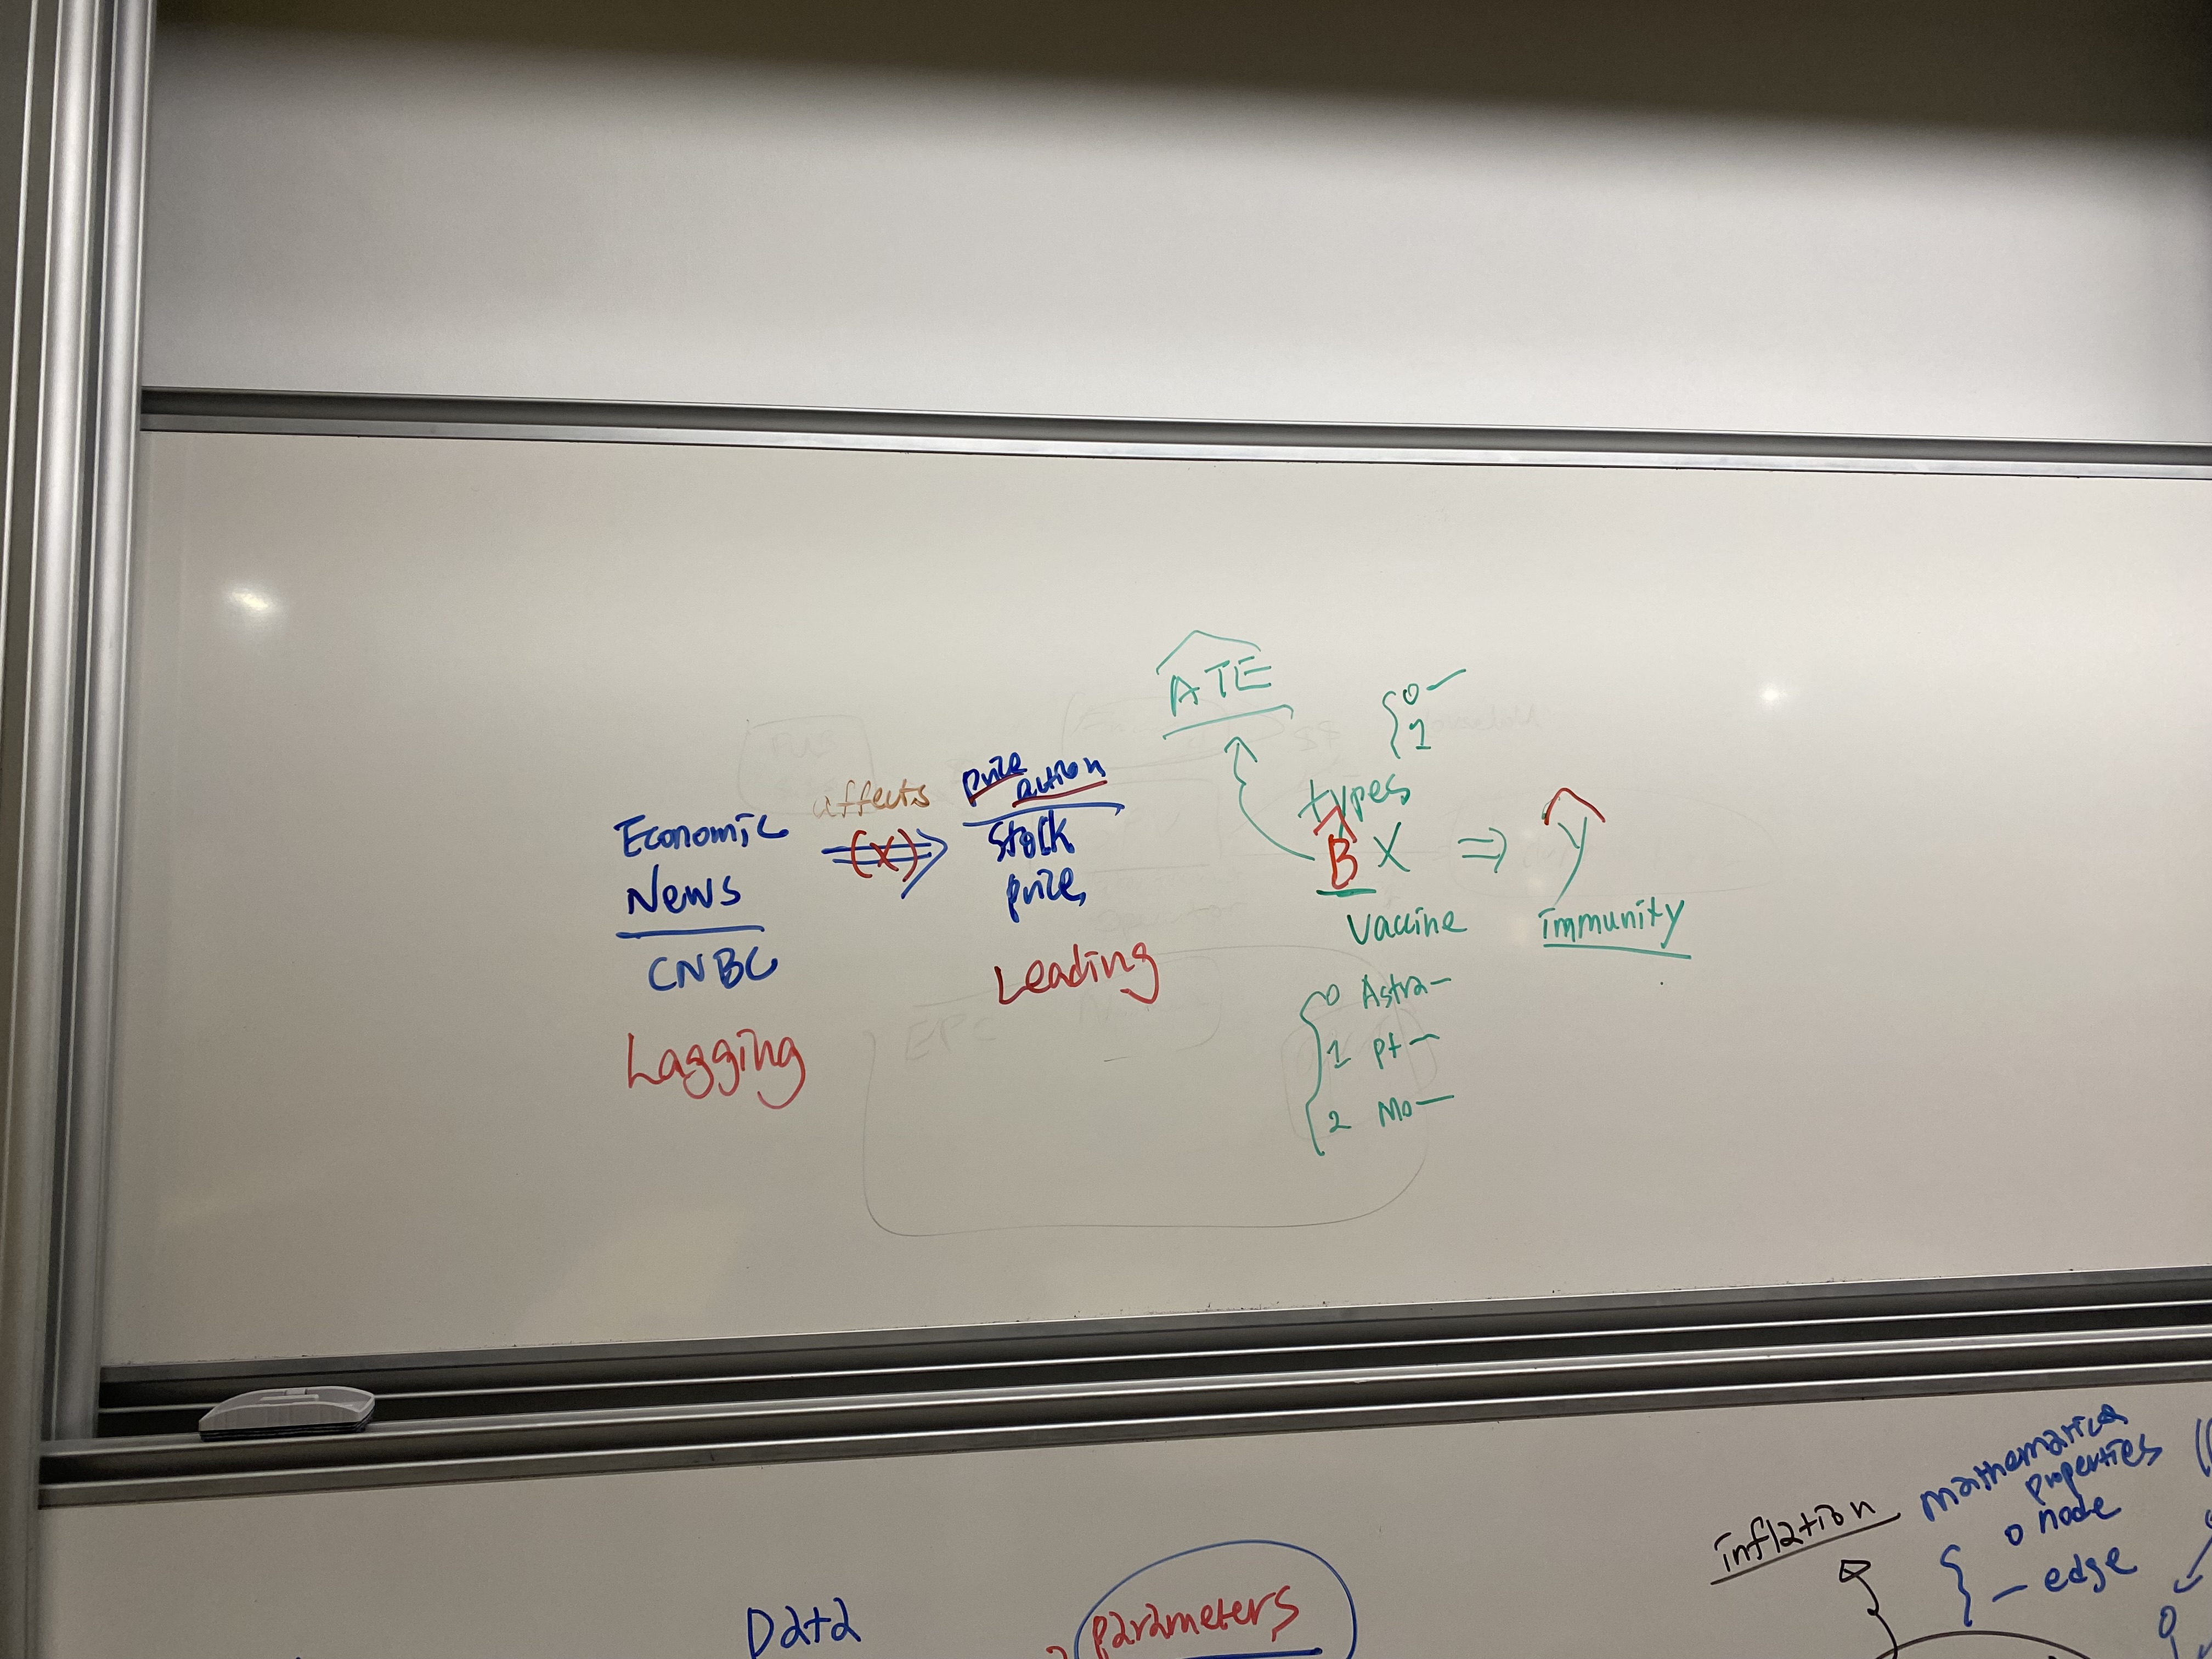 Economic
News
CNBC
Lagging
affects
(X)
price
action
Stock
price
Leading
ATE
{ 0
1
types
B X ⇒ y
Vaccine
immunity
{ 0 Astra—
1 Pf—
2 Mo—
Data
parameters
inflation
mathematica
properties
o node
— edge